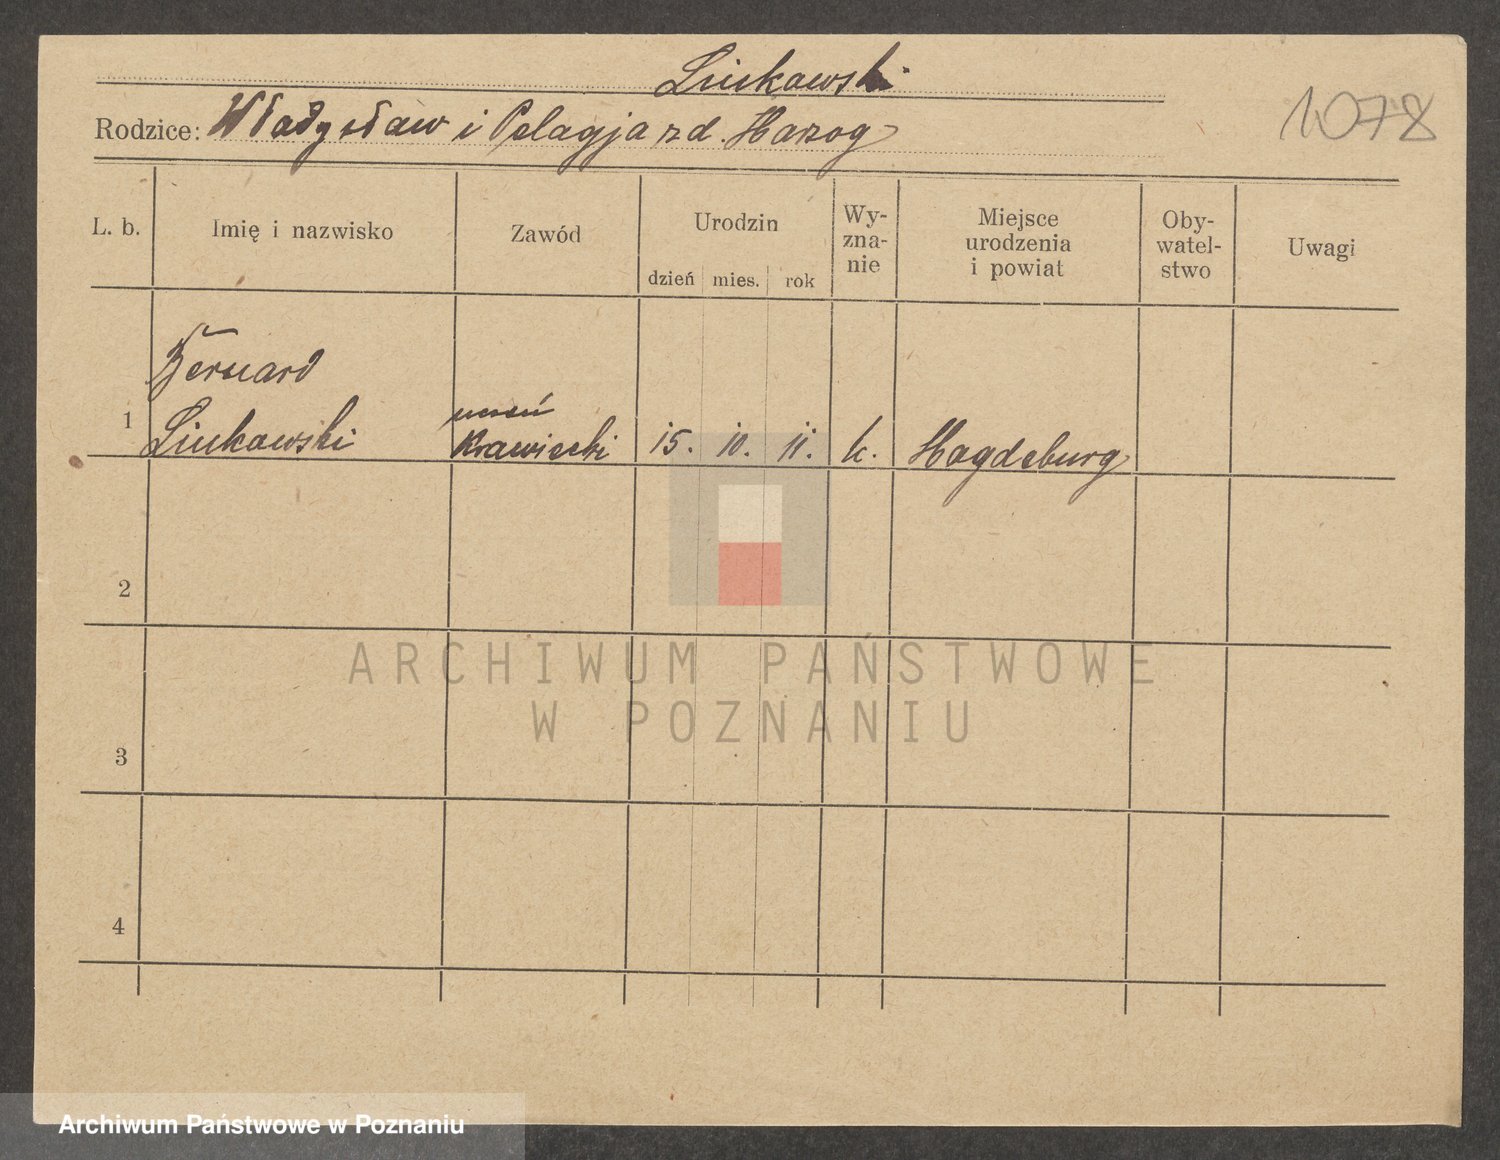 Linkowski
1078
Rodzice: Władysław i Pelagja zd. Harzog
L. b. Imię i nazwisko Zawód Urodzin dzień mies. rok Wy-zna-nie Miejsce urodzenia i powiat Oby-watel-stwo Uwagi
Bernard
1 Linkowski uczeń Krawiecki 15. 10. 11. k. Magdeburg
2
3
4
ARCHIWUM PAŃSTWOWE
W POZNANIU
Archiwum Państwowe w Poznaniu